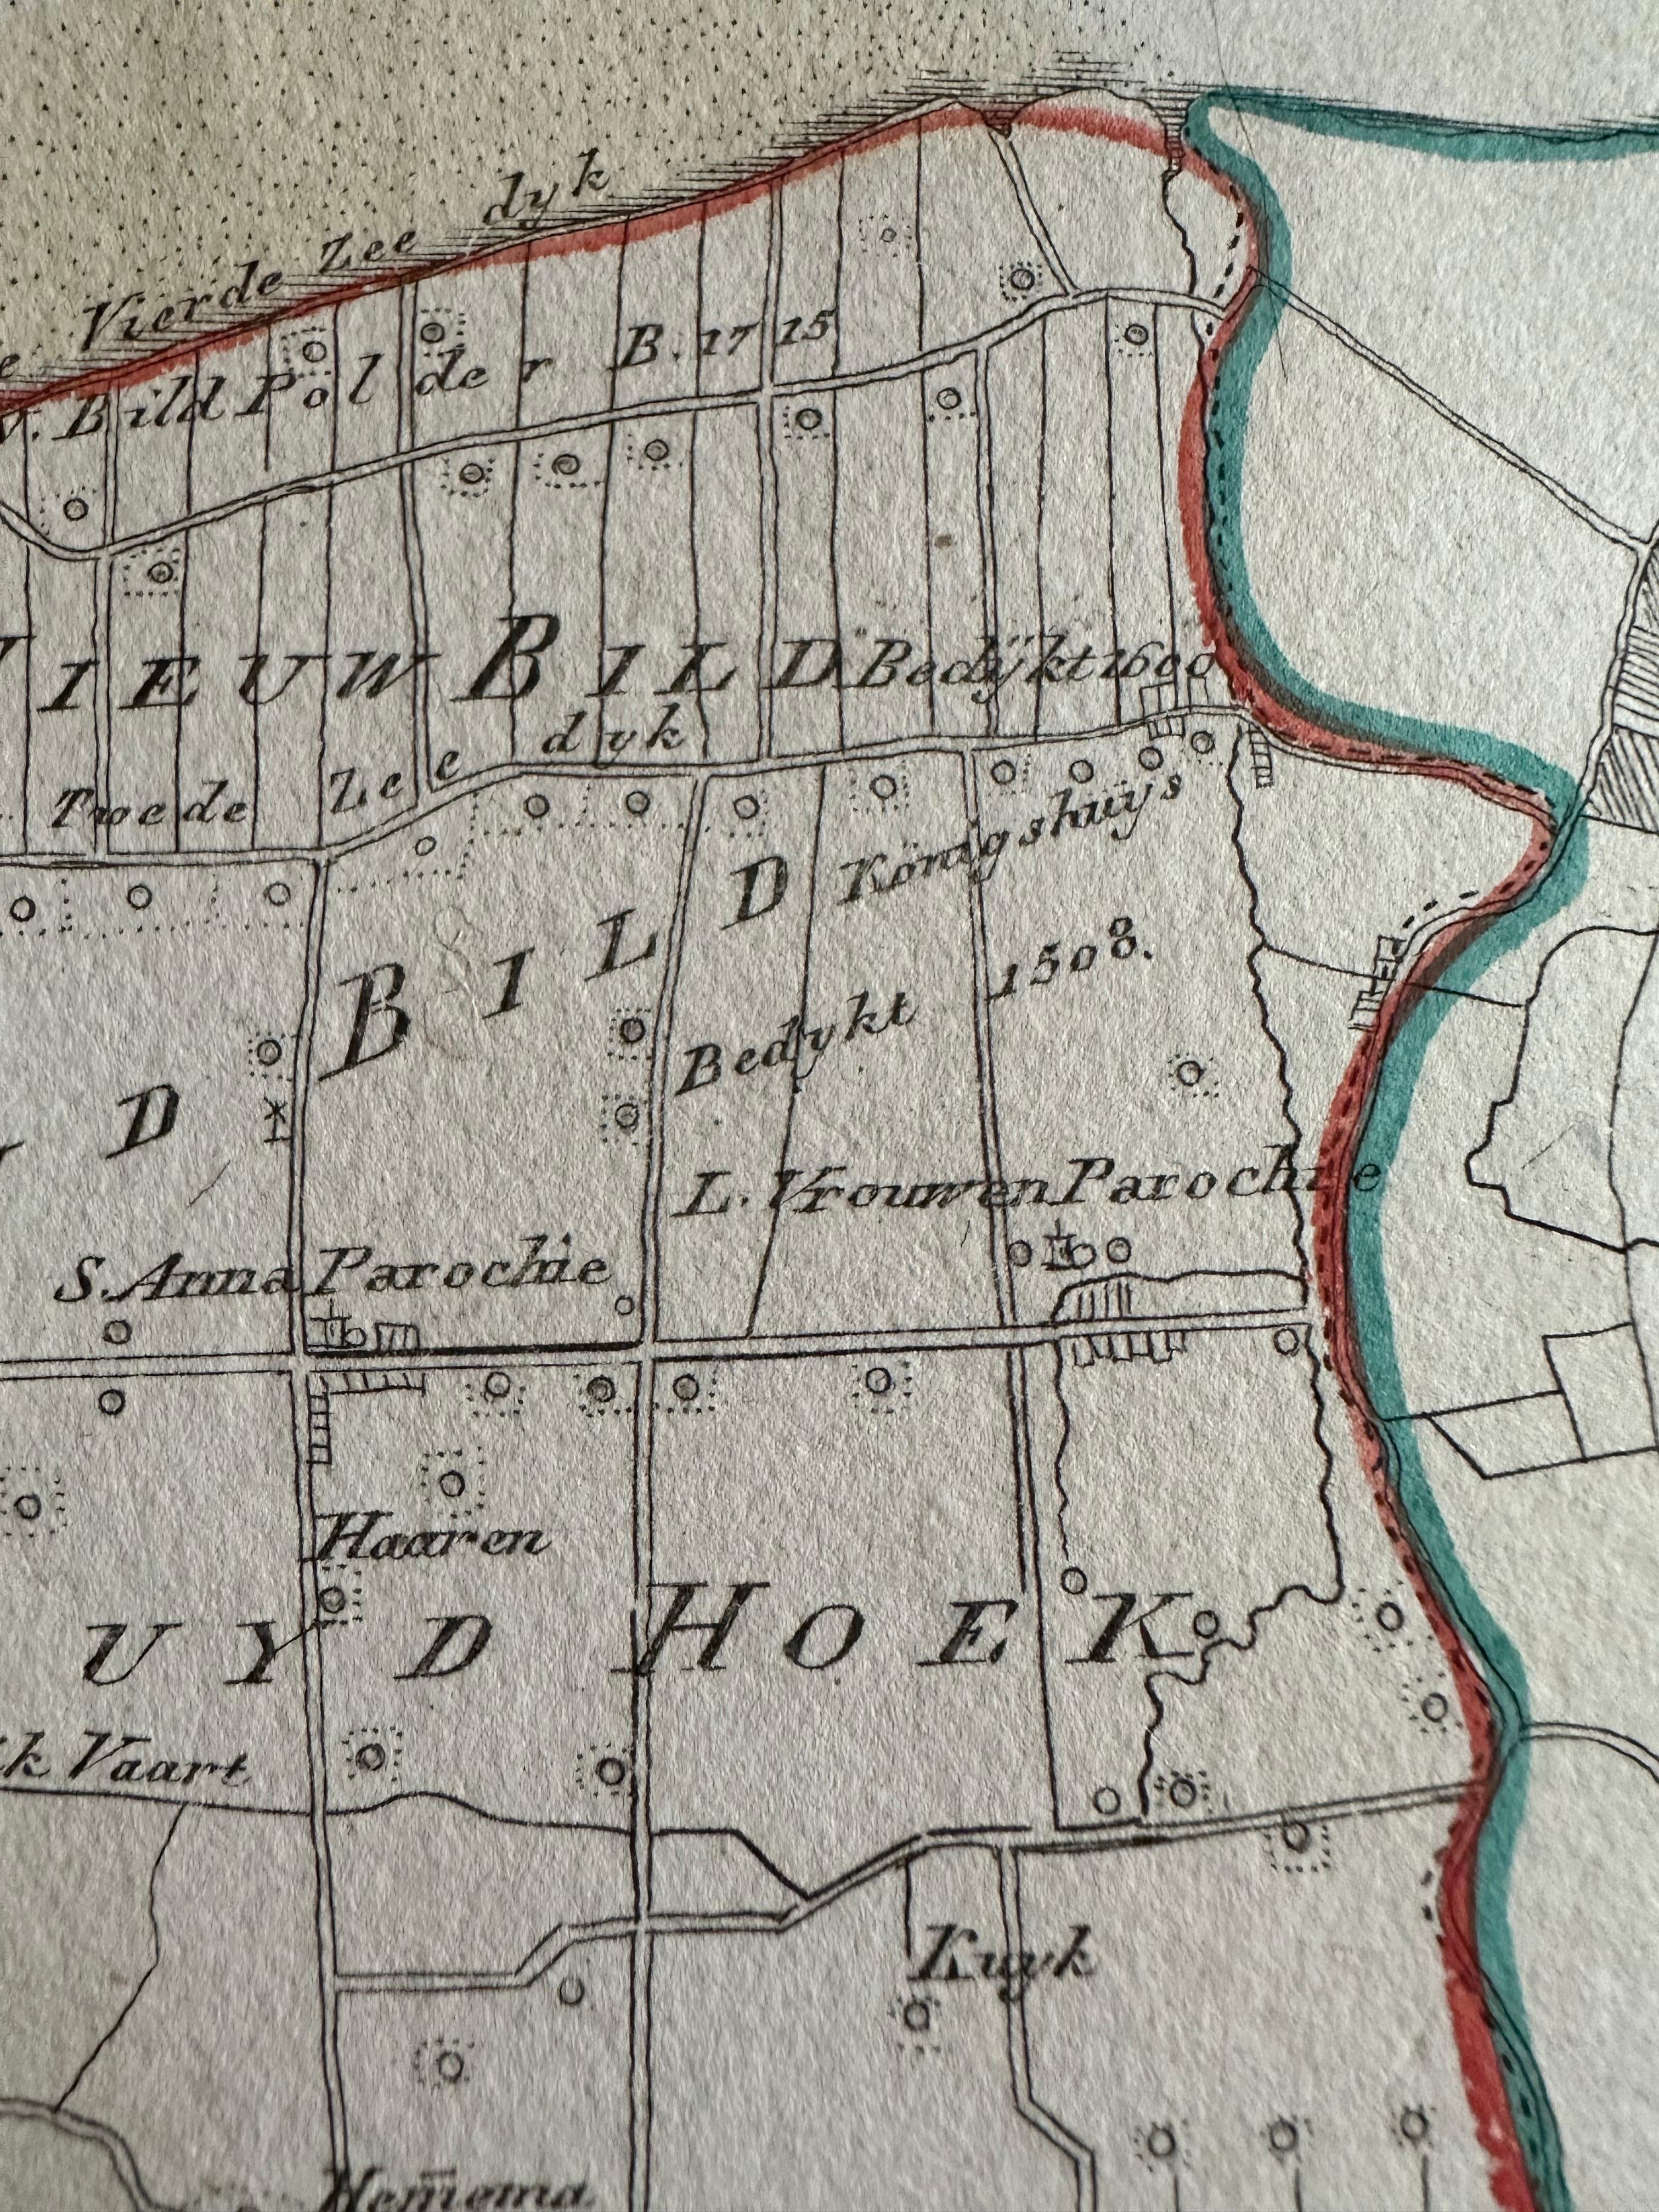 Vierde Zee dyk
Bild Polder B. 1715
NIEUW BILD Bedÿkt 1600
Twede Zee dyk
Königshuys
BILD
Bedykt 1508.
D
L. Vrouwen Parochie
S. Anna Parochie
Haaren
UYD HOEK
k Vaart
Kuyk
Hem̄ema